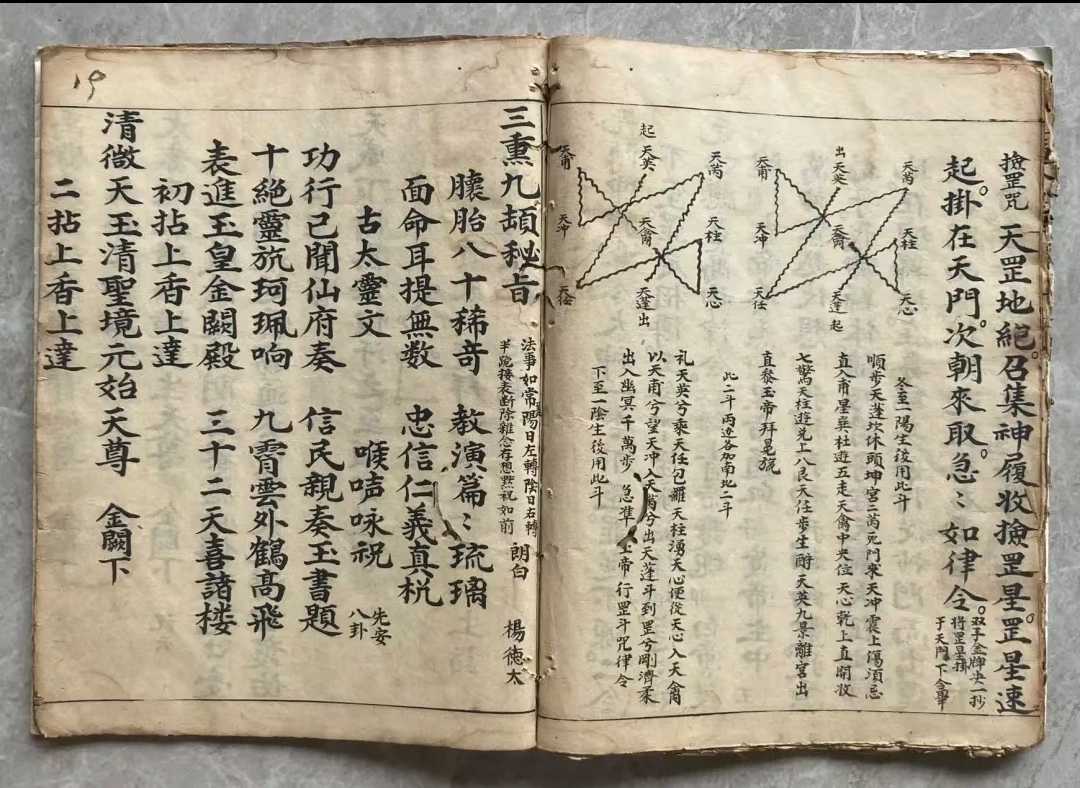 撿罡咒 天罡地絕召集神履收撿罡星罡星速
起掛在天門次朝來取急〻如律令
双手金牌央一抄
將罡星掛
于天門下令畢
天芮
出天英
天甫
天柱
天禽
天冲
天心
天逢起
天任
天芮
起天英
天甫
天柱
天禽
天冲
天心
天逢出
天任
冬至一陽生後用此斗
順步天蓬坎休頭坤宮二芮死門求天冲震上傷須忌
直入甫星巽杜遊五走天禽中央位天心乾上直開收
七驚天柱遊兌上八艮天任步生酧天英九景離宮出
直參玉帝拜冕旒
此二斗兩边各加南北二斗
礼天英兮乘天任包羅天柱湧天心便從天心入天禽
以天甫兮望天冲入天芮兮出天蓬斗到罡兮剛濟柔
出入幽冥千萬步急準玉帝行罡斗咒律令
下至一陰生後用此斗
三熏九頓秘旨
法事如常陽日左轉陰日右轉
半跪接表断除雜念存想默祝如前
朗白
楊德太
臏胎八十稀竒 教演篇〻琉璃
面命耳提無数 忠信仁義真杭
古太靈文 喉声咏祝
先安
八卦
功行已聞仙府奏 信民親奏玉書題
十絕靈旂珂珮响 九霄雲外鶴高飛
表進玉皇金闕殿 三十二天喜諸楼
初拈上香上達
清微天玉清聖境元始天尊 金闕下
二拈上香上達
19